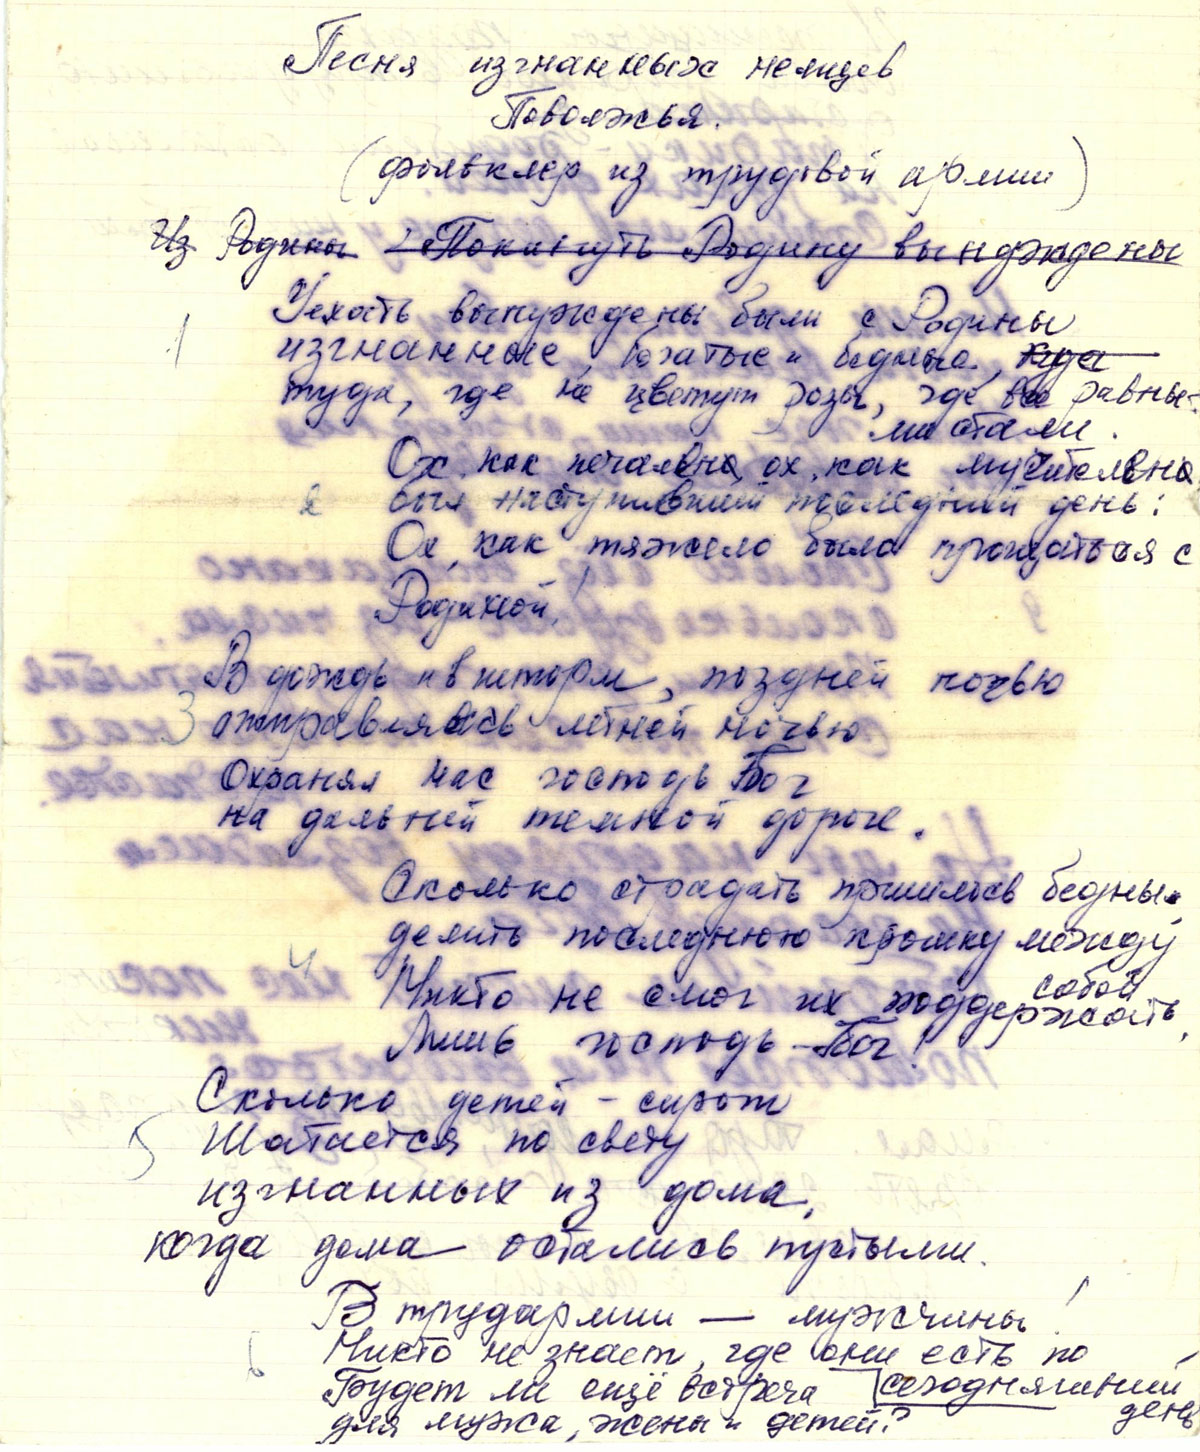 Песня изгнанных немцев
Поволжья.
(фольклер из трудовой армии)
Из Родины Покинуть Родину вынуждены
1 Уехать вынуждены были с Родины
изгнанные, богатые и бедные, куда
туда, где не цветут розы, где все равны-
ми стали.
Ох, как печально, ох, как мучительно
2 был наступивший последний день!
Ох, как тяжело было прощаться с
Родиной!
В дождь и в шторм, поздней ночью
3 отправлялись летней ночью
Охранял нас господь Бог
на дальней темной дороге.
Сколько страдать пришлось бедным
делить последнюю крошку между
4 собой
Никто не смог их поддержать,
Лишь господь-Бог!
Сколько детей - сирот
5 Шатается по свету
изгнанных из дома,
когда дома остались пустыми.
В трудармии — мужчины!
6 Никто не знает, где они есть по
Будет ли ещё встреча сегодняшний
день
для мужа, жены и детей?